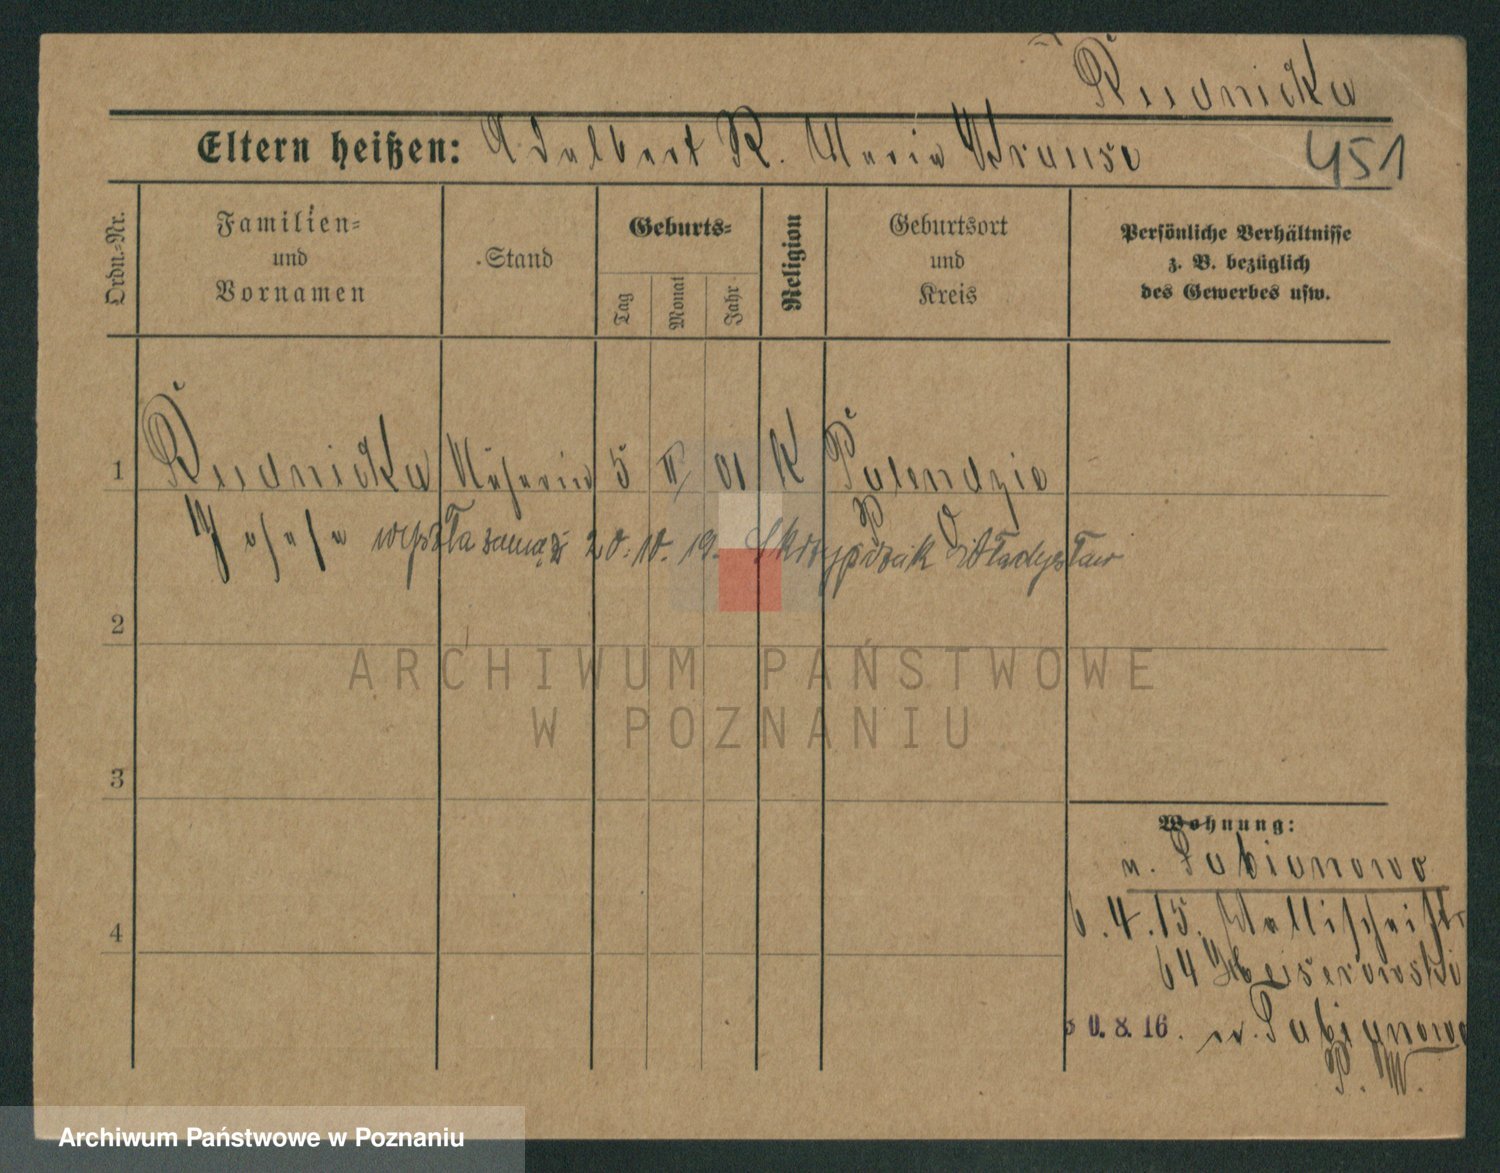 Rudnicka
Eltern heißen: Adalbert R. Maria Krause
451
Ordn.=Nr.
Familien=
und
Vornamen
Stand
Geburts=
Tag
Monat
Jahr
Religion
Geburtsort
und
Kreis
Persönliche Verhältnisse
z. B. bezüglich
des Gewerbes usw.
1
Rudnicka Näherin 5 II 01 K Palendzie
Josefa wyszła zamąż 20.10.19. Skrzypczak Władysław
2
ARCHIWUM PAŃSTWOWE
W POZNANIU
3
Wohnung:
n. Fabianowo
4
6.4.15. Wallischeistr
64
30.8.16. n. Fabianowo
P. W.
Archiwum Państwowe w Poznaniu